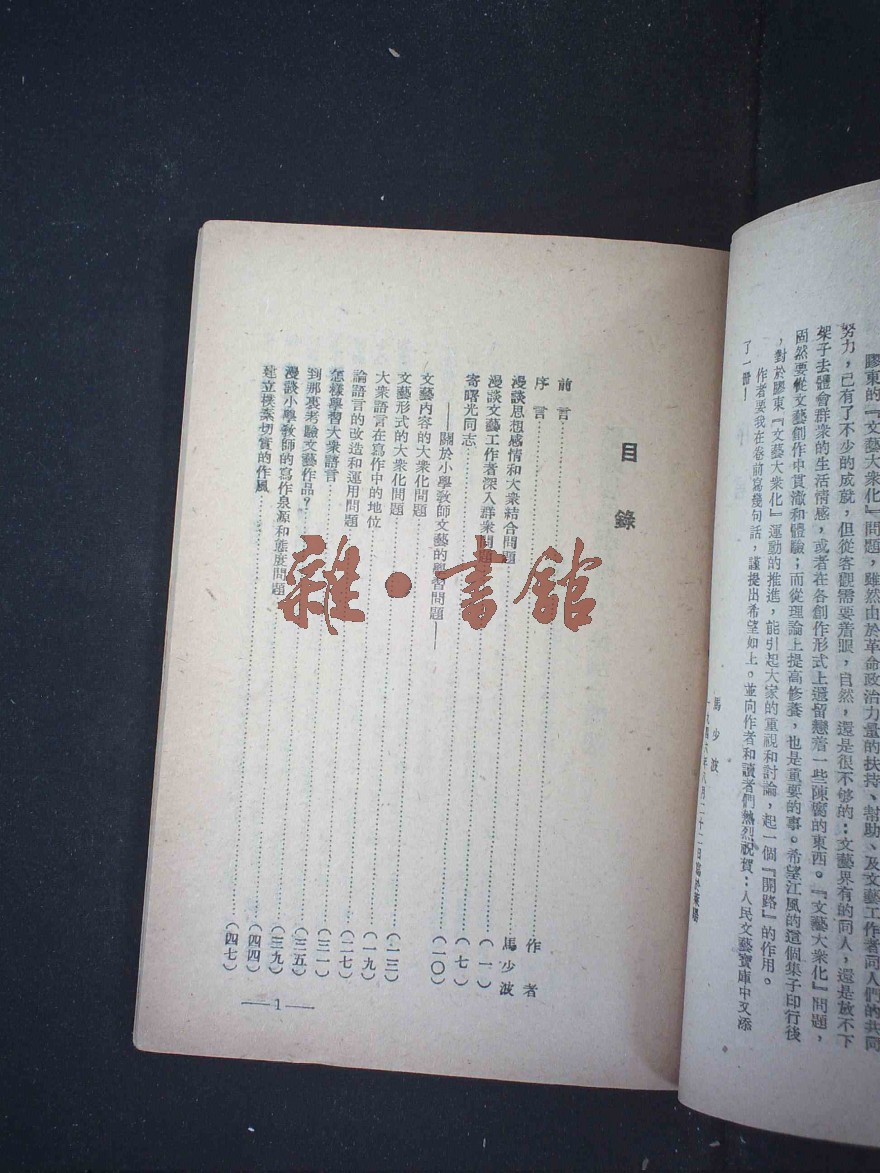 膠東的『文藝大衆化』問題，雖然由於革命政治力量的扶持、幫助、及文藝工作者同人們的共同
努力，已有了不少的成就，但從客觀需要着眼，自然，還是很不够的；文藝界有的同人，還是放不下
架子去體會群衆的生活情感，或者在各創作形式上還留戀着一些陳腐的東西。『文藝大衆化』問題，
固然要從文藝創作中貫澈和體驗；而從理論上提高修養，也是重要的事。希望江風的這個集子印行後
，對於膠東『文藝大衆化』運動的推進，能引起大家的重視和討論，起一個『開路』的作用。
作者要我在卷前寫幾句話，謹提出希望如上。並向作者和讀者們熱烈祝賀：人民文藝寶庫中又添
了一冊！
馬少波
一九四六年八月二十二日寫於
目錄
前言……作者
序言……馬少波
漫談思想感情和大衆結合問題……（一）
漫談文藝工作者深入群衆問題……（七）
寄曙光同志……（一〇）
——關於小學教師文藝的學習問題——
文藝內容的大衆化問題……（一三）
文藝形式的大衆化問題……（一九）
大衆語言在寫作中的地位……（二七）
論語言的改造和運用問題……（三一）
怎樣學習大衆語言……（三五）
到那裏考驗文藝作品？……（三九）
漫談小學教師的寫作泉源和態度問題……（四四）
建立樸素切實的作風……（四七）
—1—
雜·書館